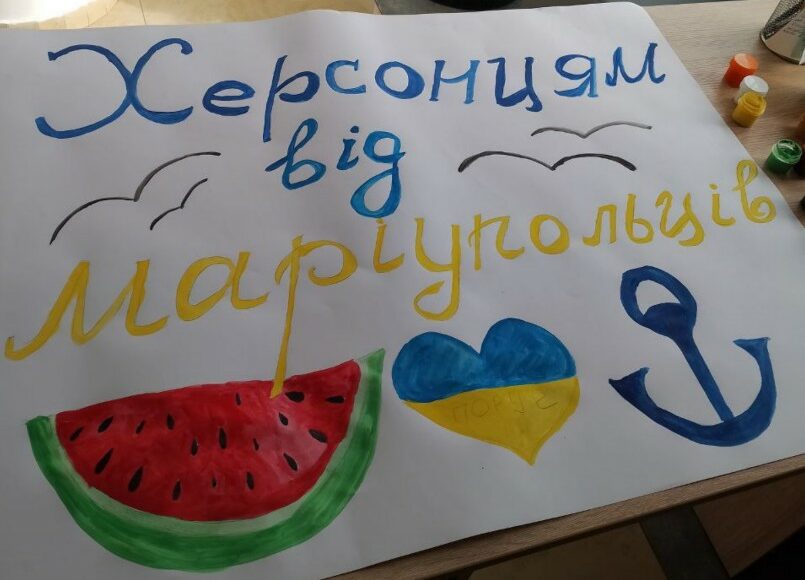 Херсонцям
від
маріупольців
ПОРУЧ